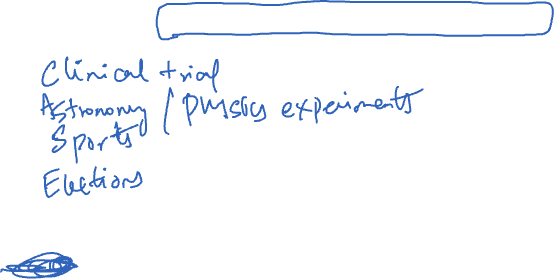 Clinical trial
Astronomy / Physics experiments
Sports
Elections